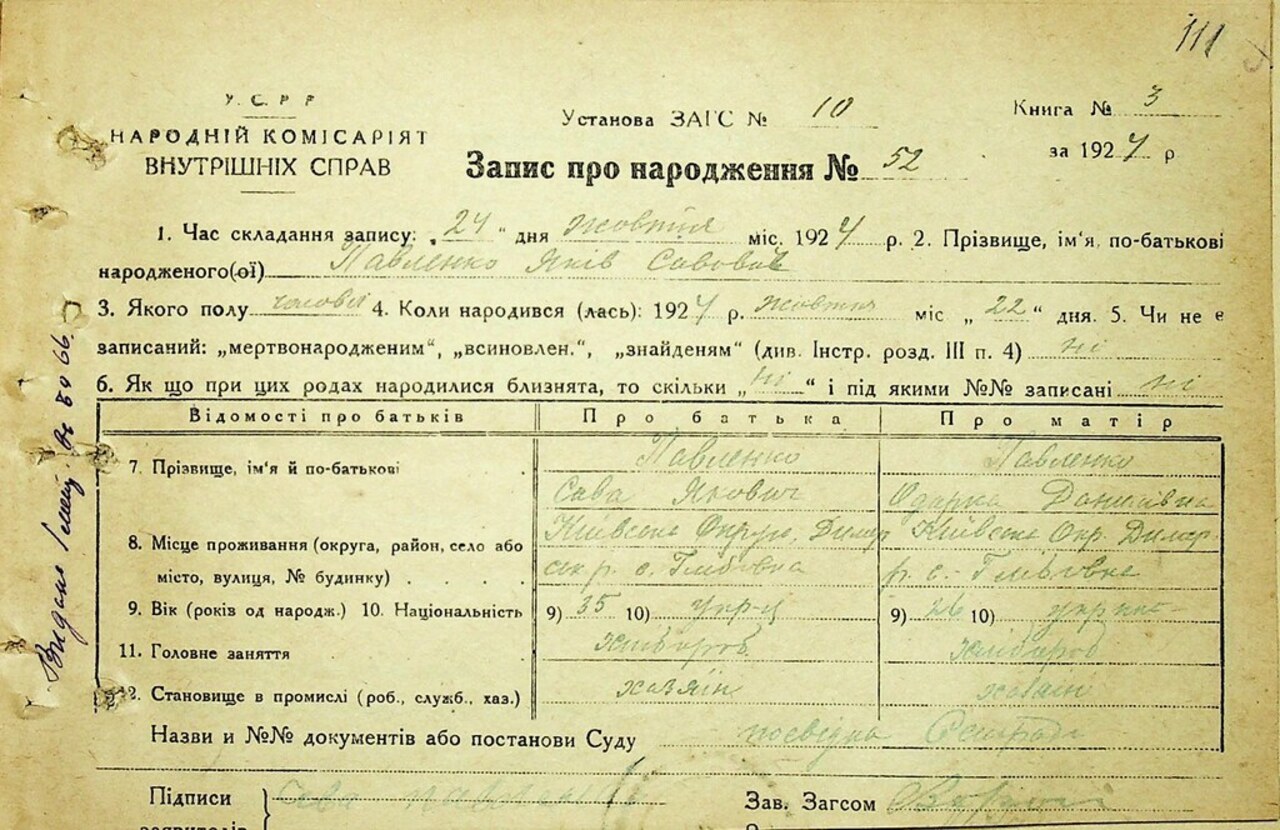 111
У.С.Р.Р
НАРОДНІЙ КОМІСАРІЯТ
ВНУТРІШНІХ СПРАВ
Установа ЗАГС № 10
Книга № 3
за 1927 р
Запис про народження № 52
1. Час складання запису: „24" дня жовтня міс. 1927 р. 2. Прізвище, ім'я, по-батькові
народженого(ої) Павленко Яків Савович
3. Якого полу чоловіч 4. Коли народився (лась): 1927 р. жовтня міс „22" дня. 5. Чи не є
записаний: „мертвонародженим", „всиновлен.", „знайденям" (див. Інстр. розд. III п. 4) ні
6. Як що при цих родах народилися близнята, то скільки „ні" і під якими №№ записані ні
Відомості про батьків Про батька Про матір
7. Прізвище, ім'я й по-батькові Павленко Павленко
Сава Якович Одарка
8. Місце проживання (округа, район, село або Київська Округ. Димер Київська Окр. Димер
місто, вулиця, № будинку) ськ р. с. Глібівка р. с. Глібівка
9. Вік (років од народж.) 10. Національність 9) 35 10) укр-ц 9) 26 10)
11. Головне заняття хлібороб хлібороб
12. Становище в промислі (роб., служб., хаз.) хазяін хазаін
Назви и №№ документів або постанови Суду посвідка Сельради
Підписи
заявителів
Сава Павленко
Зав. Загсом
Видано
66.